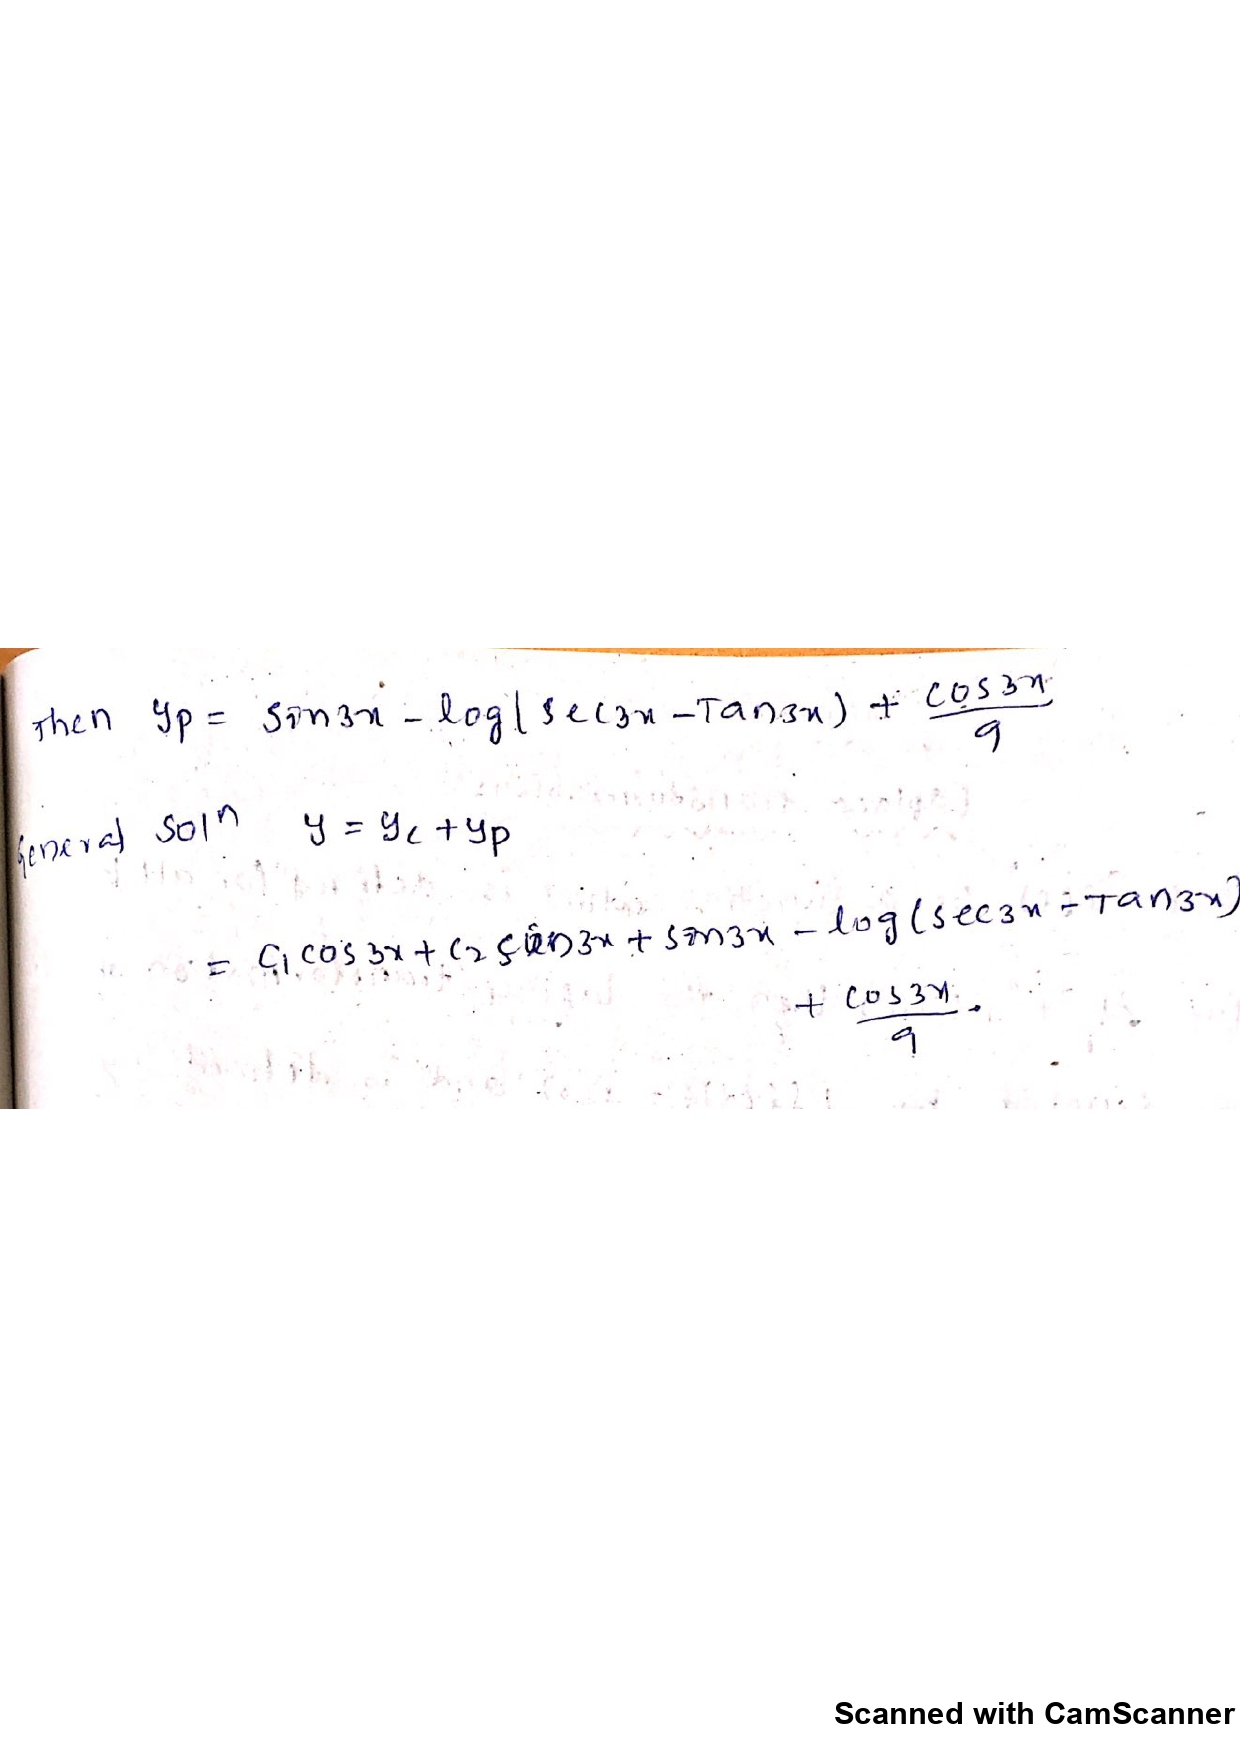 Then yp = sin3x - log(sec3x - Tan3x) + cos3x/9
General Soln y = yc + yp
= C1 cos3x + C2 sin3x + sin3x - log(sec3x - Tan3x)
+ cos3x/9.
Scanned with CamScanner